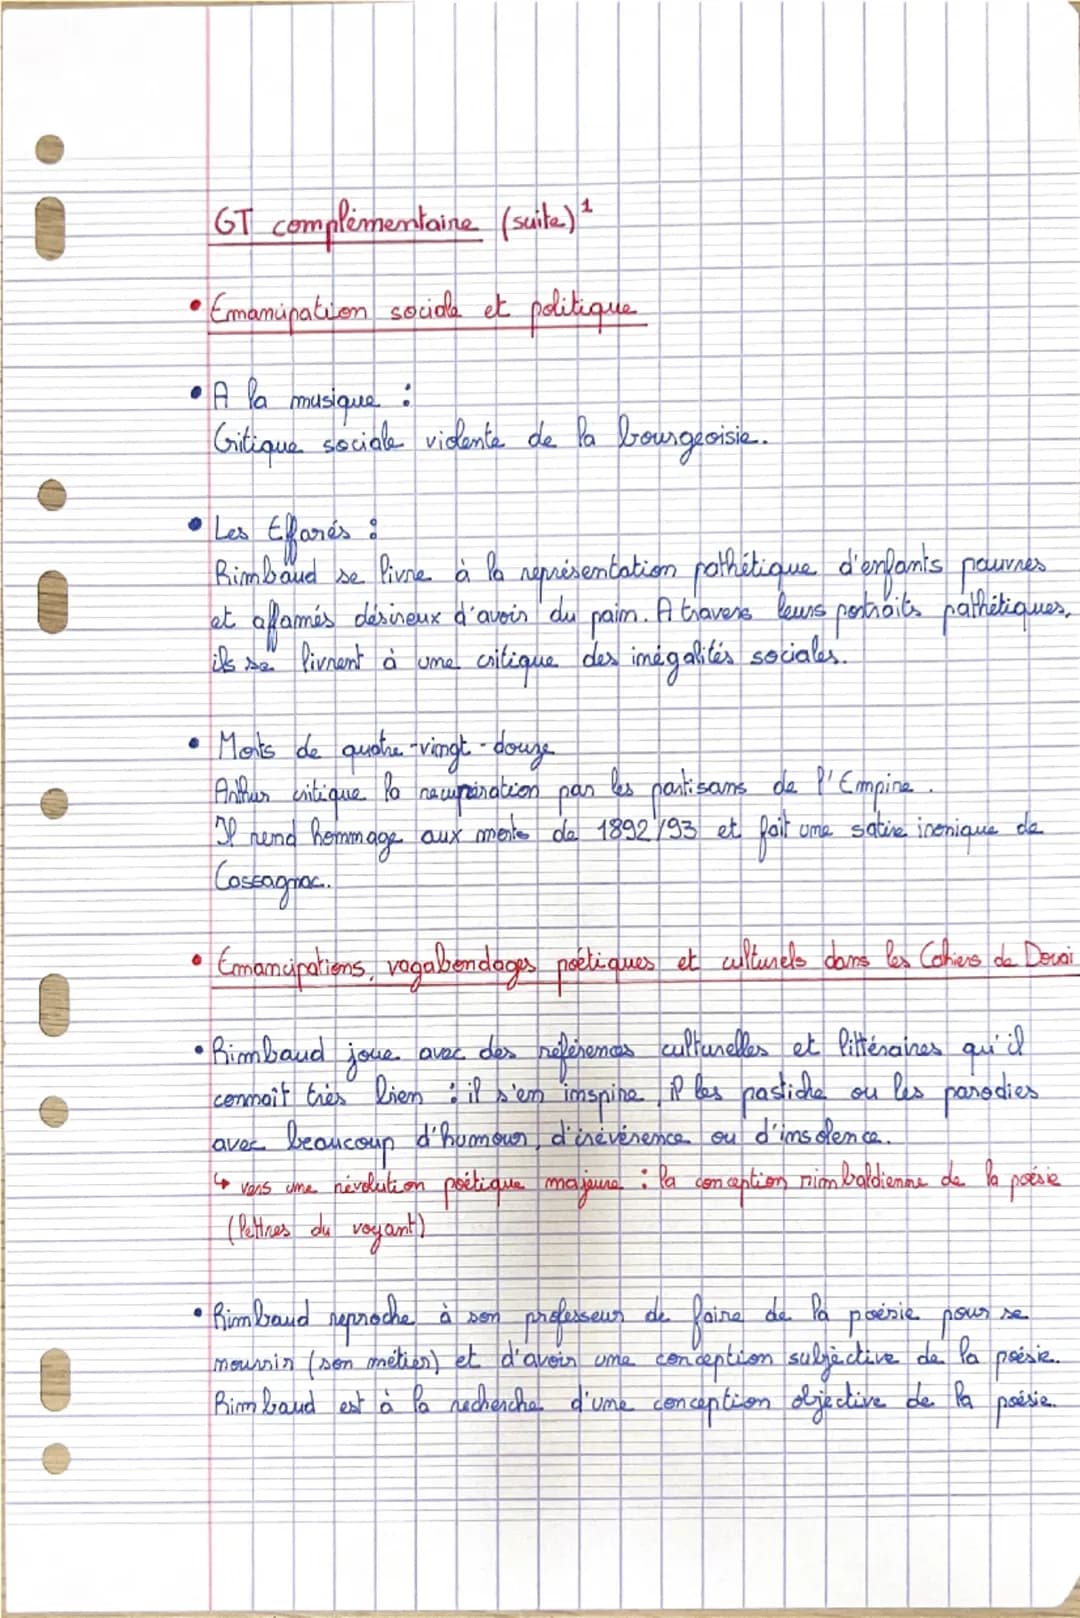 GT complémentaire (suite) 1
• Emancipation sociale et politique
• A la musique :
Critique sociale violente de la bourgeoisie.
• Les Effarés :
Rimbaud se livre à la représentation pathétique d'enfants pauvres
et affamés désireux d'avoir du pain. A travers leurs portraits pathétiques,
ils se livrent à une critique des inégalités sociales.
• Morts de quatre-vingt-douze
Arthur critique la récupération par les partisans de l'Empire.
Il rend hommage aux morts de 1892/93 et fait une satire ironique de
Cassagnac.
• Emancipations, vagabondages poétiques et culturels dans les Cahiers de Douai
• Rimbaud joue avec des références culturelles et littéraires qu'il
connaît très bien : il s'en inspire, il les pastiche ou les parodies
avec beaucoup d'humour, d'irévérence ou d'insolence.
↳ vers une révolution poétique majeure : la conception rimbaldienne de la poésie
(lettres du voyant)
• Rimbaud reproche à son professeur de faire de la poésie pour se
mourrir (son métier) et d'avoir une conception subjective de la poésie.
Rimbaud est à la recherche d'une conception objective de la poésie.